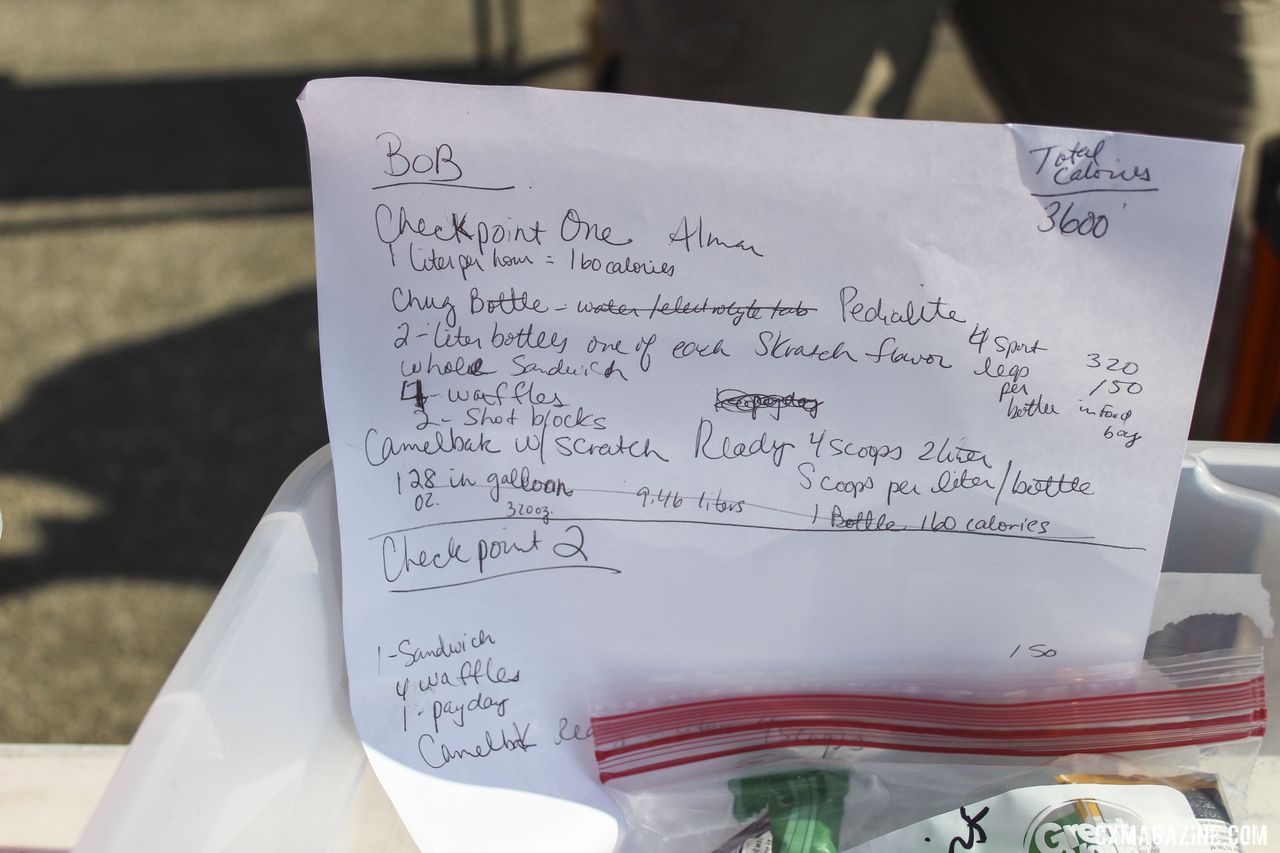 BOB
Total
Calories
3600
Checkpoint One Alma
1 liter per hour = 160 calories
Chug Bottle - water/electrolyte tab Pedialite
2-liter bottles one of each Skratch flavor
4 Sport
legs
per
bottle
320
150
in Food
bag
whole Sandwich
4 - waffles
2 - Shot blocks
Camelbak w/ scratch Ready 4 scoops 2 liter
128 in galloon
oz.
320oz.
9.46 liters
Scoops per liter/bottle
1 Bottle 160 calories
Checkpoint 2
1 - Sandwich
150
4 waffles
1 - payday
Camelbak
4 scoops
CXMAGAZINE.COM